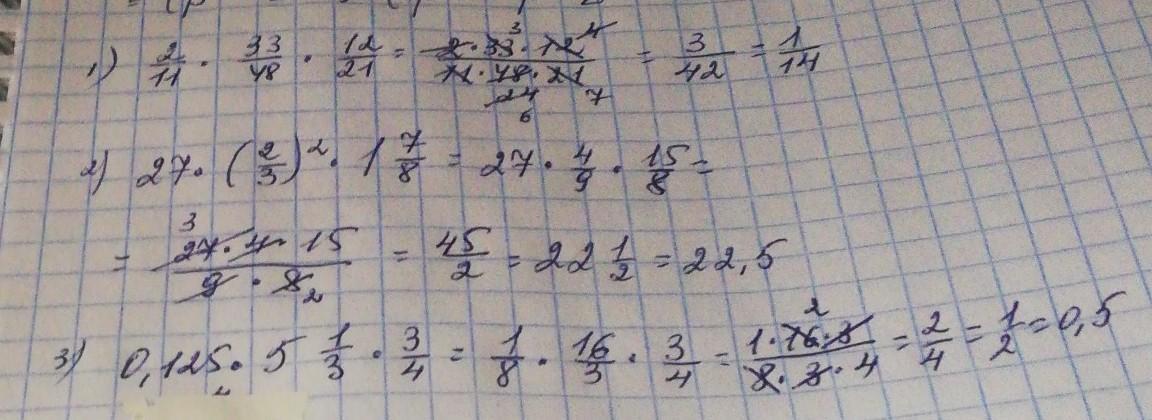 1) 2/11 · 33/48 · 12/21 = (2 · 33 · 12)/(11 · 48 · 21) 3 4 24 6 7 = 3/42 = 1/14
2) 27 · (2/3)² · 1 7/8 = 27 · 4/9 · 15/8 =
= (27 · 4 · 15)/(9 · 8) 3 2 = 45/2 = 22 1/2 = 22,5
3) 0,125 · 5 1/3 · 3/4 = 1/8 · 16/3 · 3/4 = (1 · 16 · 3)/(8 · 3 · 4) 2 = 2/4 = 1/2 = 0,5